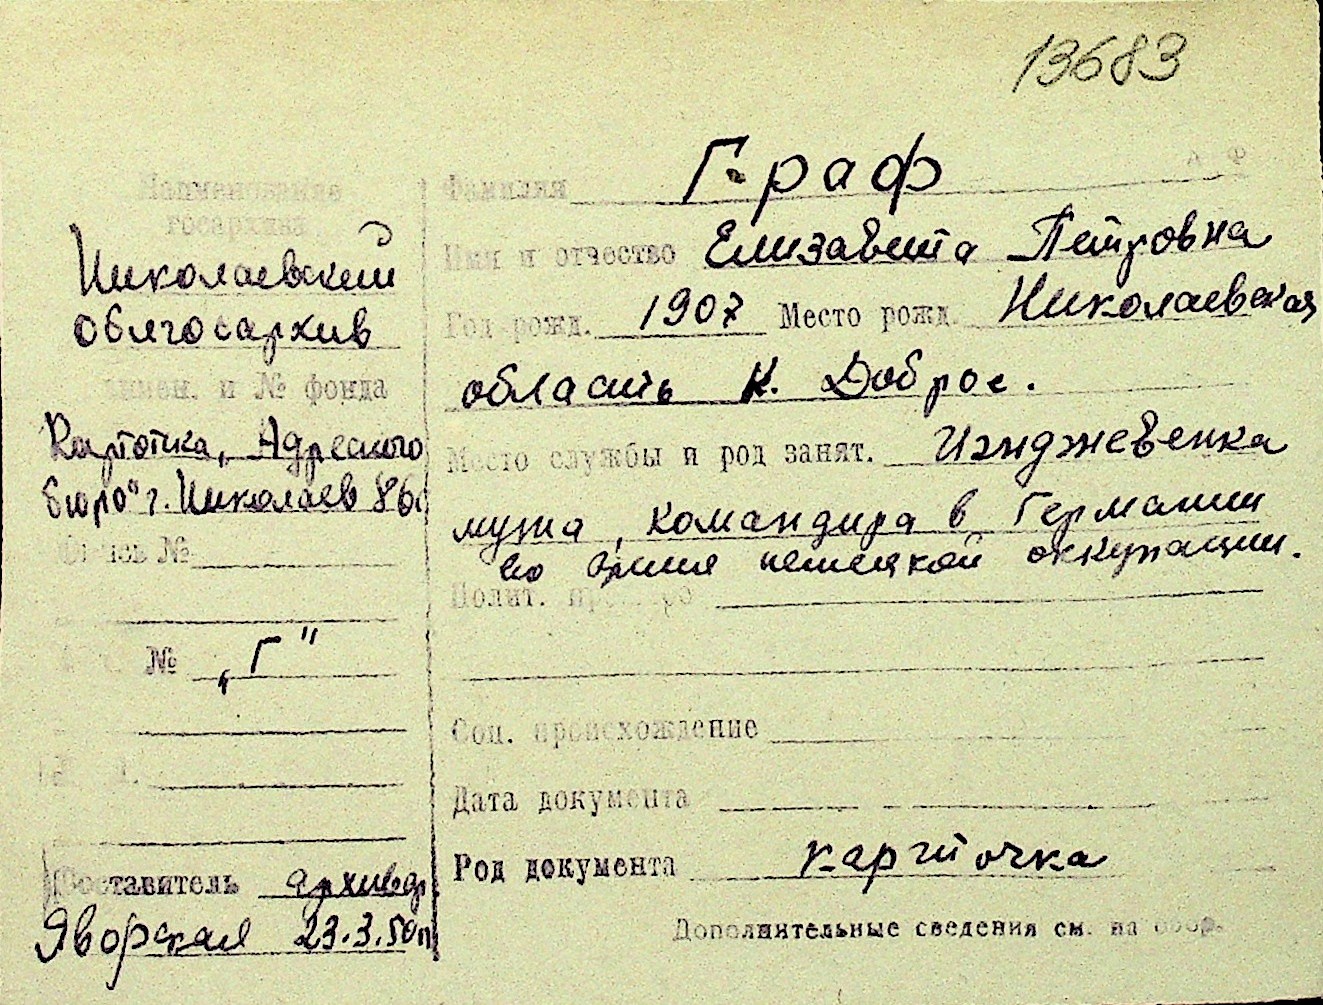 13683
Наименование
госархива
Николаевский
облгосархив
имен. и № фонда
Картотка „Адресного
бюро" г. Николаев 86
Опись №
№ „Г"
Составитель архивар.
Яворская 23.3.50
Фамилия Граф
Имя и отчество Елизавета Петровна
Год рожд. 1907 Место рожд. Николаевская
область К. Доброе.
Место службы и род занят. Иэнджевенка
мужа, командира в Германии
во время немецкой оккупации.
Полит.
Соц. происхождение
Дата документа
Род документа карточка
Дополнительные сведения см. на обор.